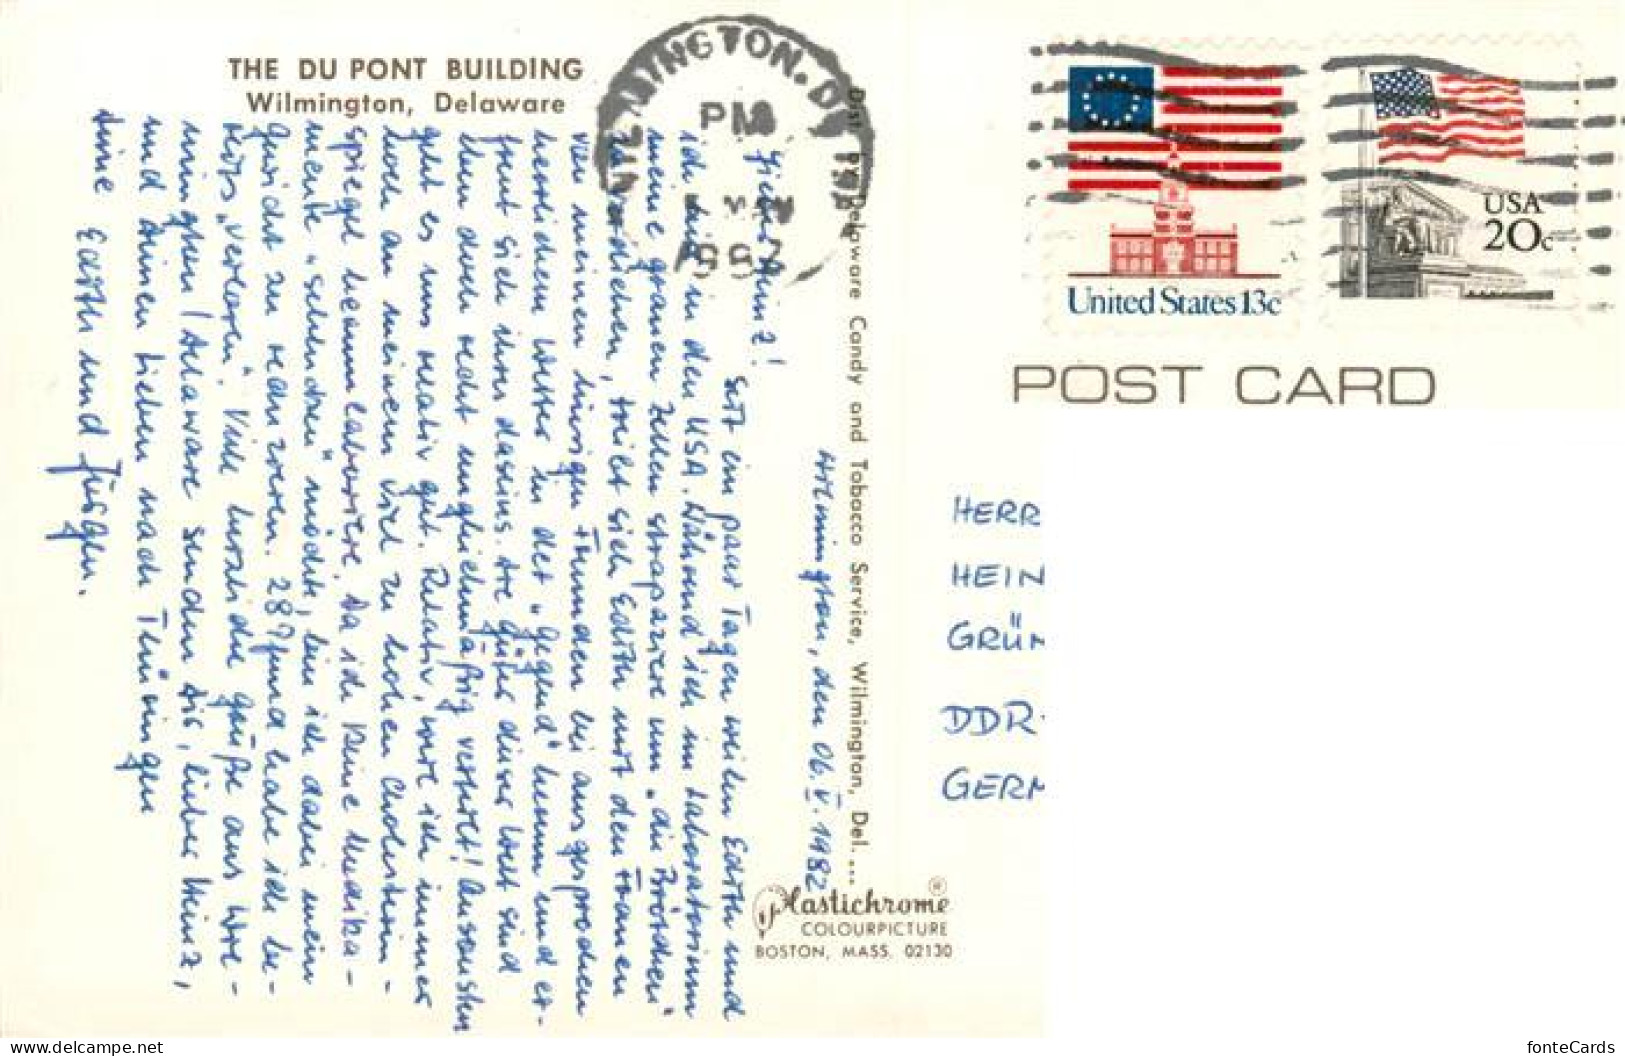 THE DU PONT BUILDING
Wilmington, Delaware
MINGTON. D
PM
Dist. by Delaware Candy and Tobacco Service, Wilmington, Del. ...
Wilmington, den 06. V. 1982
Lieber Heinz!
Seit ein paar Tagen weilen Edith und
ich in den USA. Während ich im Laboratorium
meine grauen Zellen strapaziere um „die Brötchen"
zu verdienen, treibt sich Edith mit den Frauen
von meinen hiesigen Freunden bei ausgesprochen
herrlichem Wetter in der „Gegend" herum und er-
freut sich ihres Daseins. Die Güter dieser Welt sind
eben doch recht ungleichmäßig verteilt! Ansonsten
geht es uns relativ gut. Relativ, weil ich immer
noch an meinem viel zu hohen Cholesterin-
spiegel herumlaboriere. Da ich keine Medika-
mente „schlucken" möchte, bin ich dabei mein
Gewicht zu reduzieren. 28 Pfund habe ich be-
reits „verloren". Viele herzliche Grüße aus Wil-
mington/Delaware senden Dir, lieber Heinz,
und Deinen Lieben nach Thüringen
Deine Edith und Jürgen.
United States 13c
USA
20c
POST CARD
HERR
HEIN
GRÜN
DDR-
GERM
Plastichrome ®
COLOURPICTURE
BOSTON, MASS. 02130
delcampe.net
fonteCards